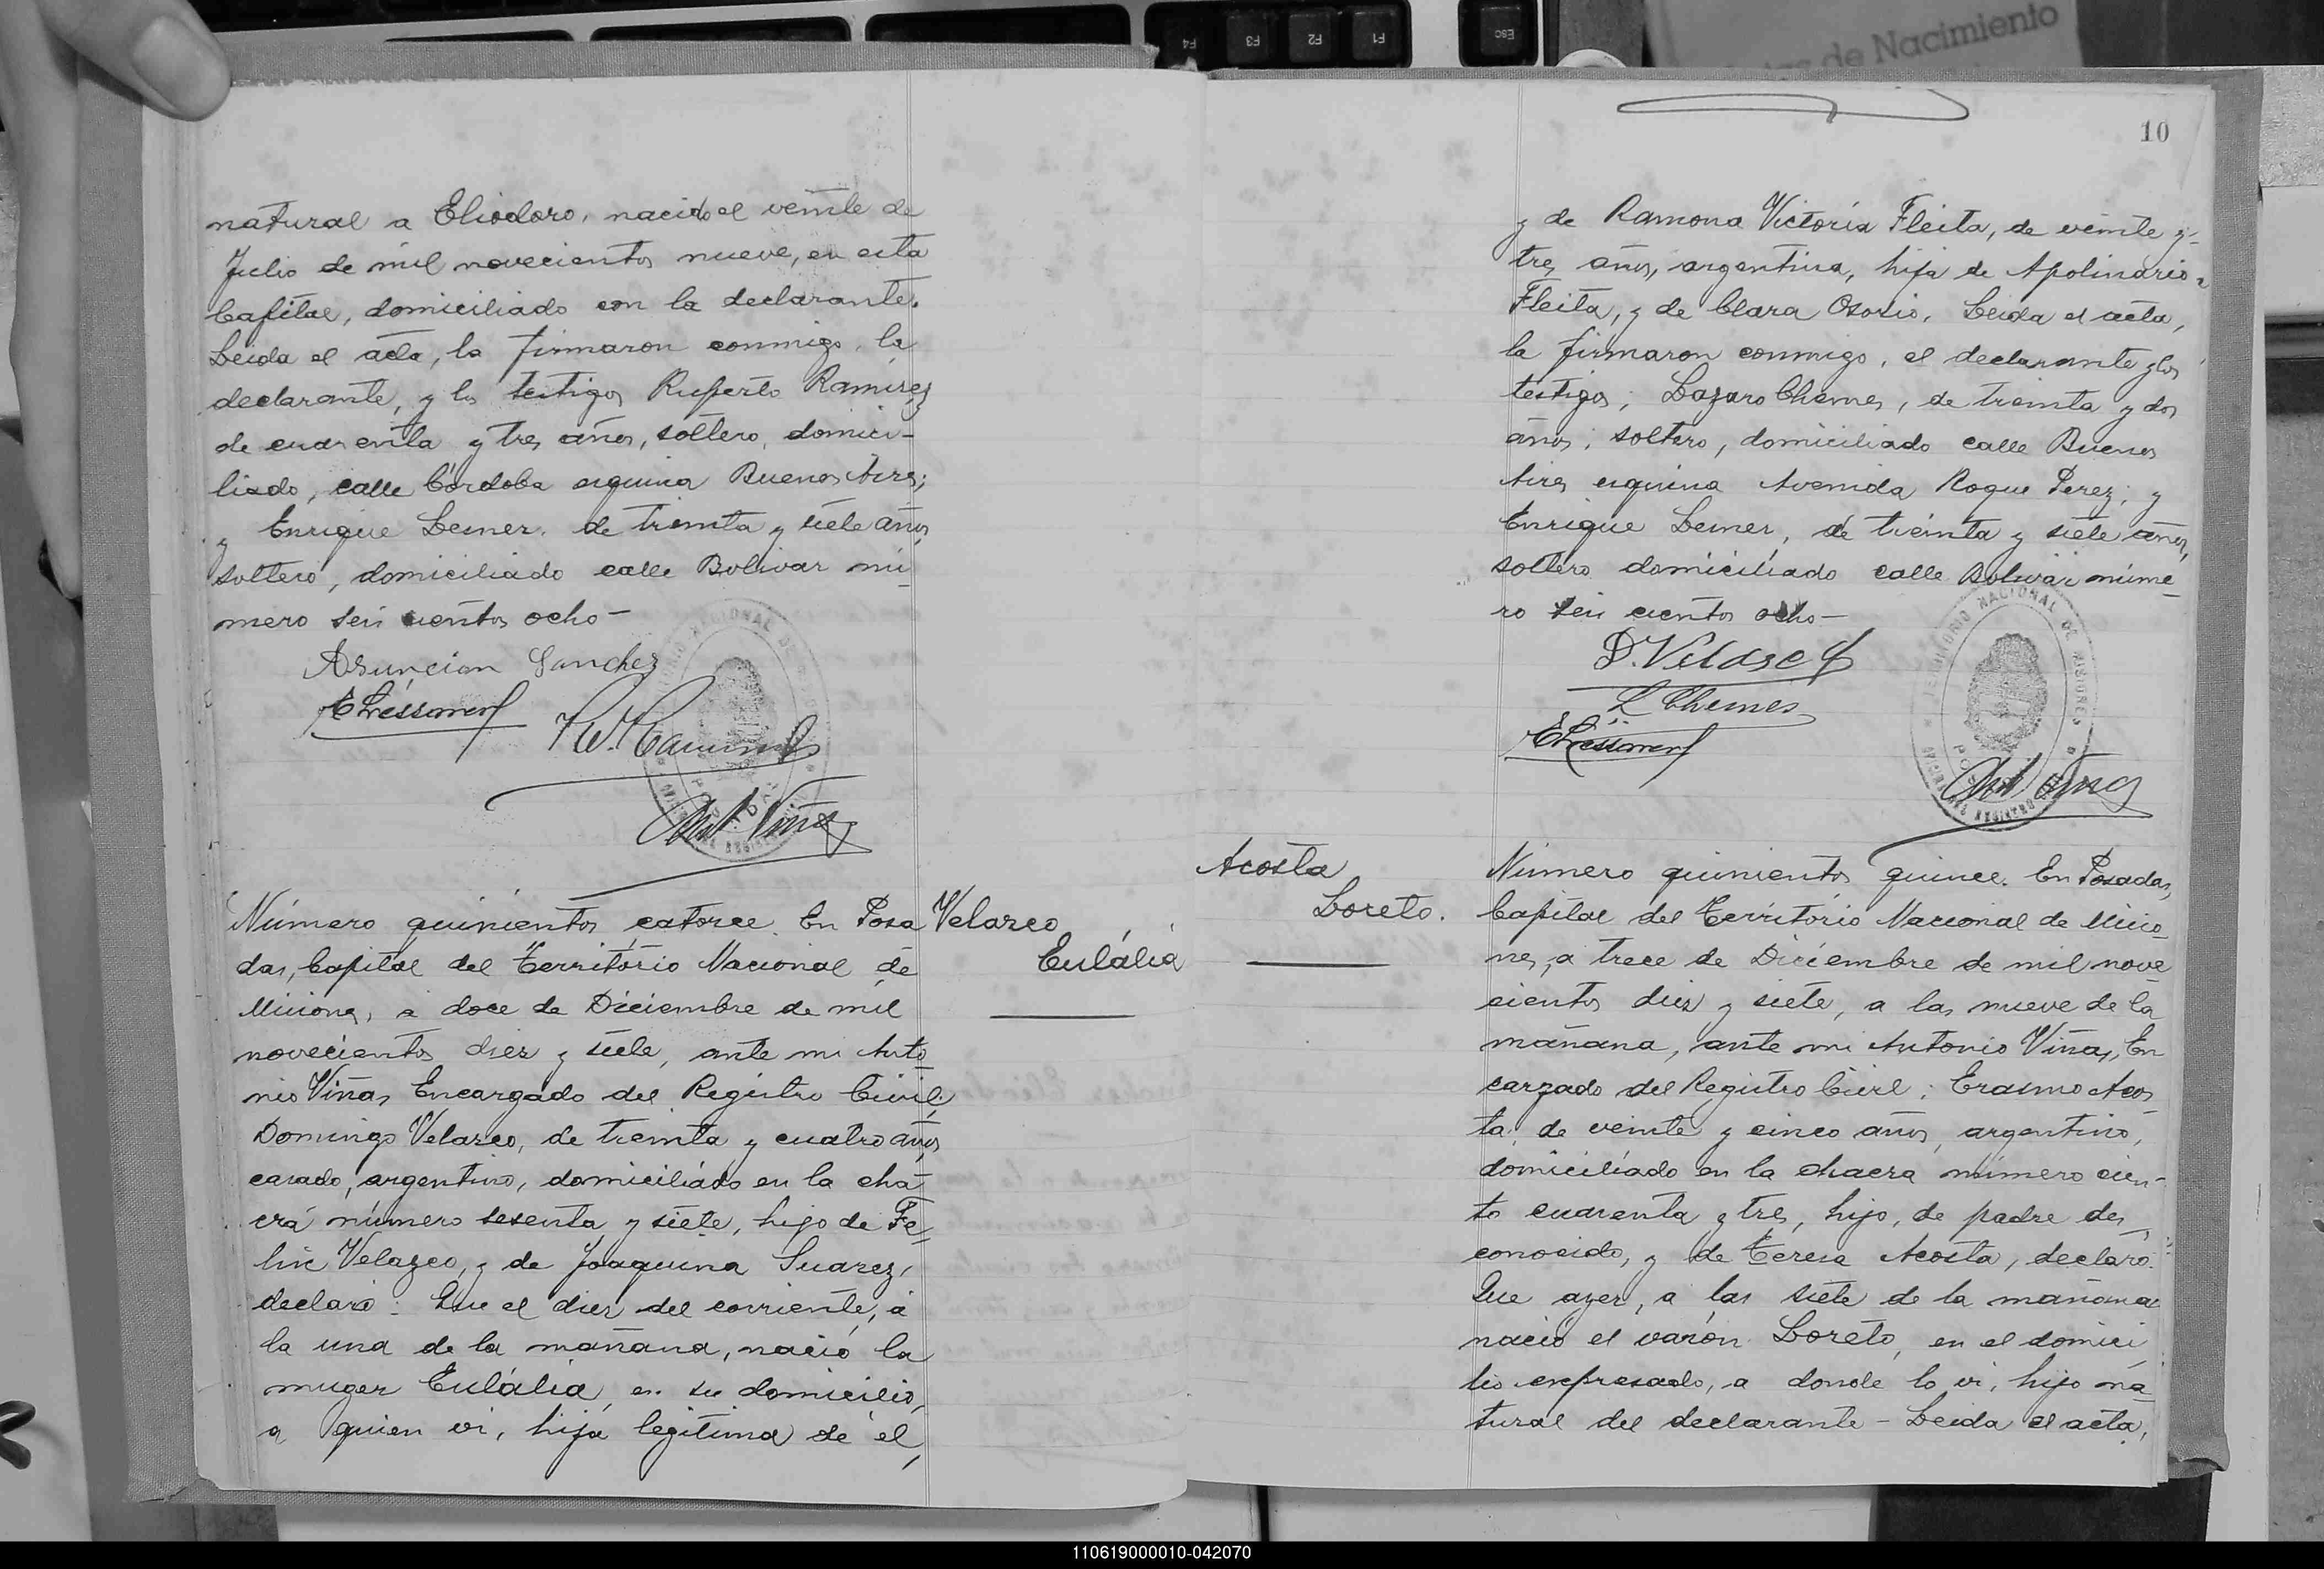 F4 F3 F2 F1 Esc
de Nacimiento
natural a Eliodoro, nacido el veinte de
Julio de mil novecientos nueve, en esta
Capital, domiciliado con la declarante.
Leida el acta, la firmaron conmigo, la
declarante, y los testigos Ruperto Ramirez
de cuarenta y tres años, soltero, domici-
liado, calle Córdoba esquina Buenos Aires;
y Enrique Lesner, de treinta y siete años
soltero, domiciliado calle Bolivar nú-
mero seis cientos ocho-
Asuncion Sanchez
Ant. Viñas
Número quinientos catorce. En Posa
das, Capital del Territorio Nacional de
Misiones, a doce de Diciembre de mil
novecientos diez y siete, ante mi Anto
nio Viñas Encargado del Registro Civil;
Domingo Velazco, de treinta y cuatro años
casado, argentino, domiciliado en la cha
cra número sesenta y siete, hijo de Fe-
lix Velazco, y de Joaquina Suarez,
declaró: Que el diez del corriente, á
la una de la mañana, nació la
muger Eulália, en su domicilio,
a quien vi, hija legitima de él,
Velazco
Eulália
10
y de Ramona Victoria Fleita, de veinte y-
tres años, argentina, hija de Apolinario
Fleita, y de Clara Osorio. Leida el acta,
la firmaron conmigo, el declarante y los
testigos; Lazaro Chemes, de treinta y dos
años, soltero, domiciliado calle Buenos
Aires esquina Avenida Roque Perez; y
Enrique Lesner, de treinta y siete años,
soltero domiciliado calle Bolivar núme-
ro seis cientos ocho-
D. Velasco
L Chemes
TERRITORIO NACIONAL DE MISIONES
Ant. Viñas
Acosta
Loreto.
Número quinientos quince. En Posadas,
Capital del Territorio Nacional de Misio-
nes, a trece de Diciembre de mil nove
cientos diez y siete, a las nueve de la
mañana, ante mi Antonio Viñas, En
cargado del Registro Civil; Erasmo Acos
ta, de veinte y cinco años, argentino,
domiciliado en la chacra número cien-
to cuarenta y tres, hijo, de padre des-
conocido, y de Teresa Acosta, declaró:
Que ayer, a las siete de la mañana
nació el varón Loreto, en el domici
lio expresado, a donde lo vi, hijo na-
tural del declarante - Leida el acta,
110619000010-042070